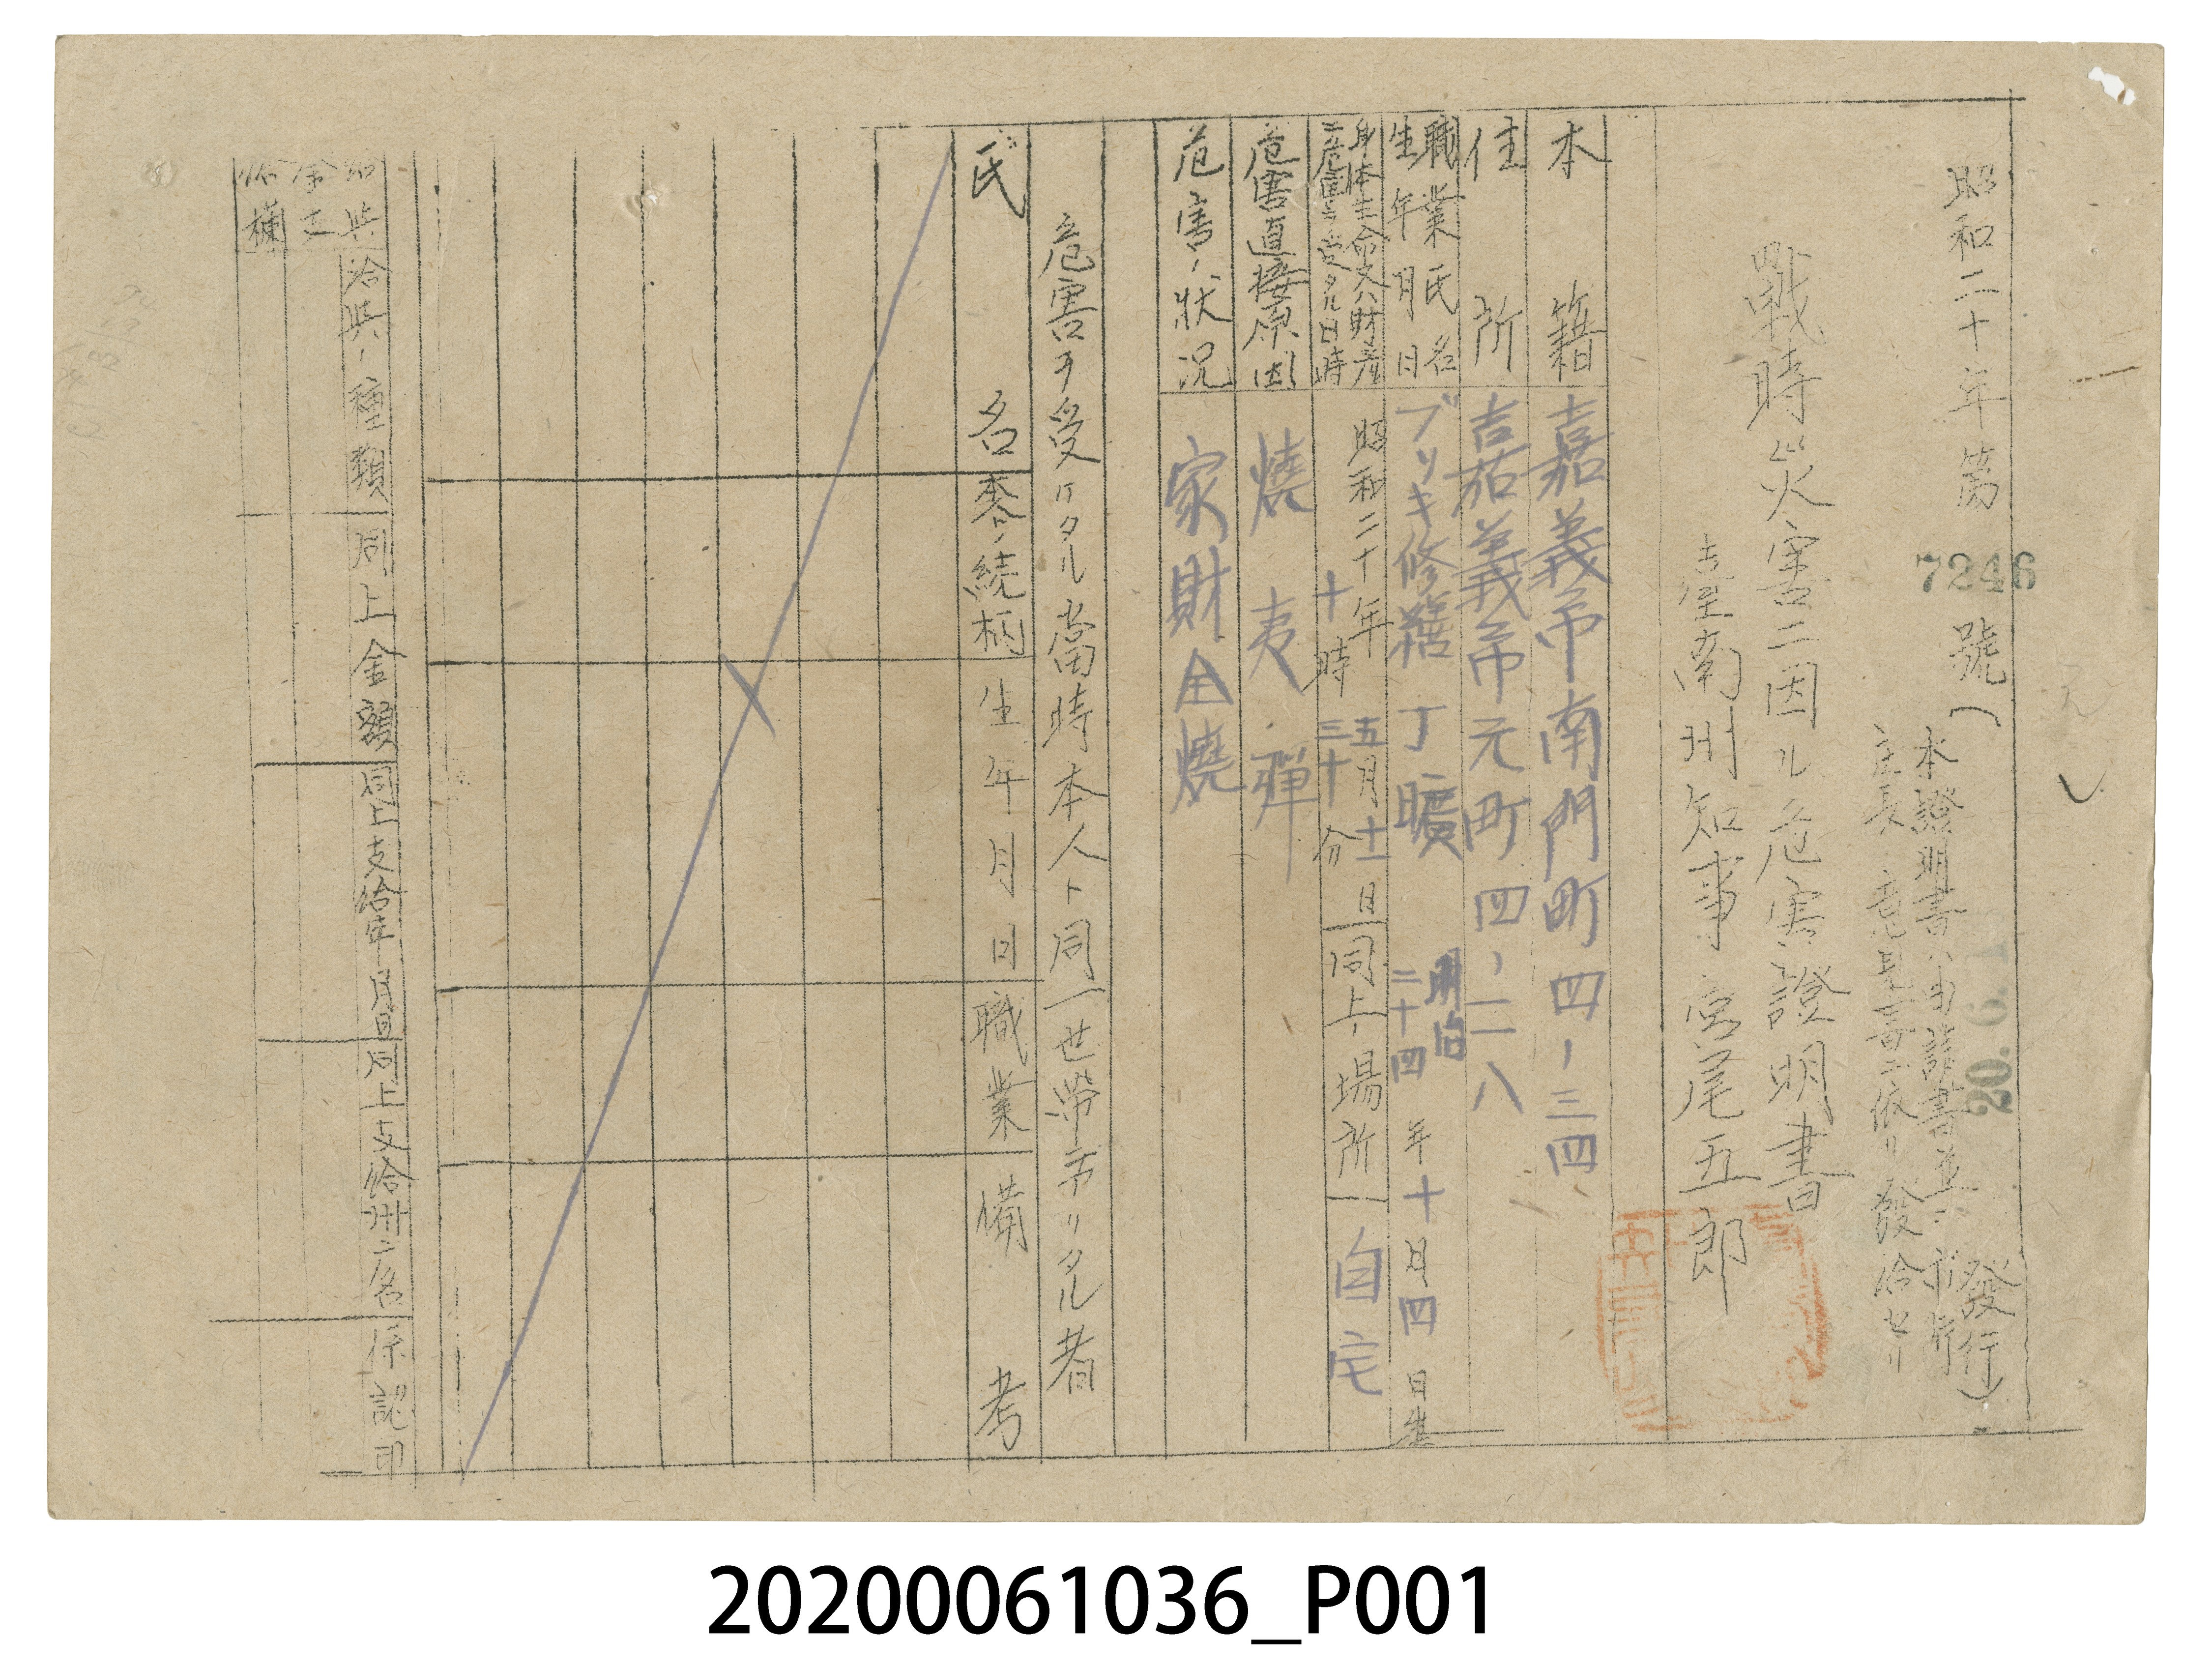 昭和二十年第 7246 號(
20. 6. 1 發行)
本證明書ハ申請書並ニ市街
庄長ノ意見書ニ依リ發給セリ
戰時災害ニ因ル危害證明書
臺南州知事 宮尾五郎
本籍 嘉義市南門町四ノ三四
住所 嘉義市元町四ノ一二八
職業氏名 ブリキ修繕 丁曠
生年月日 明治二十四年十月四日生
身体生命又ハ財産ニ危害ヲ受ケタル日時 昭和二十年五月十一日十時三十分
同上ノ場所 自宅
危害直接原因 燒夷彈
危害ノ狀況 家財全燒
危害ヲ受ケタル當時本人ト同一世帶ニ在リタル者
氏名 本人トノ続柄 生年月日 職業 備考
給與金支給欄
給與ノ種類 同上金額 同上支給年月日 同上支給州廳名 係認印
20200061036_P001